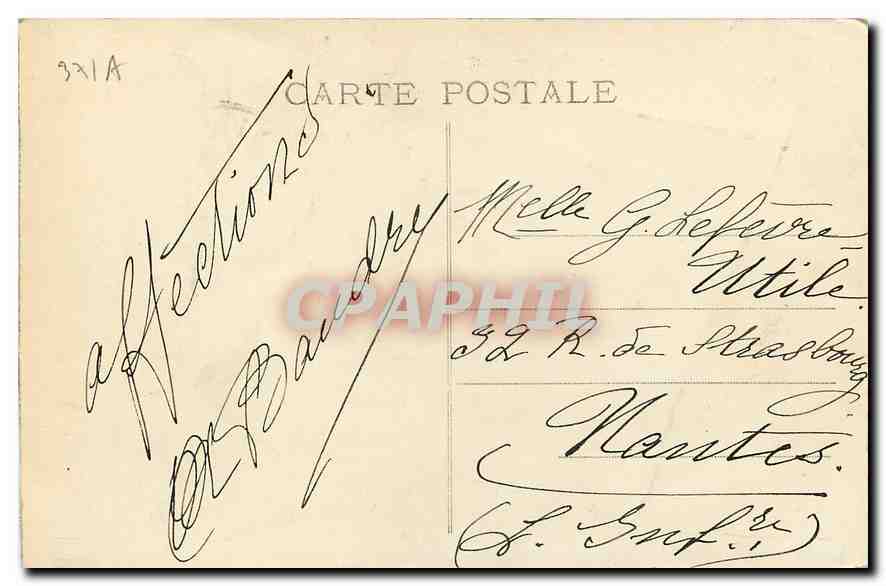 371A
CARTE POSTALE
affections
Baudry
Melle G. Lefèvre-
Utile.
32 R. de Strasbourg.
Nantes.
(L. Infre)
CPAPHIL